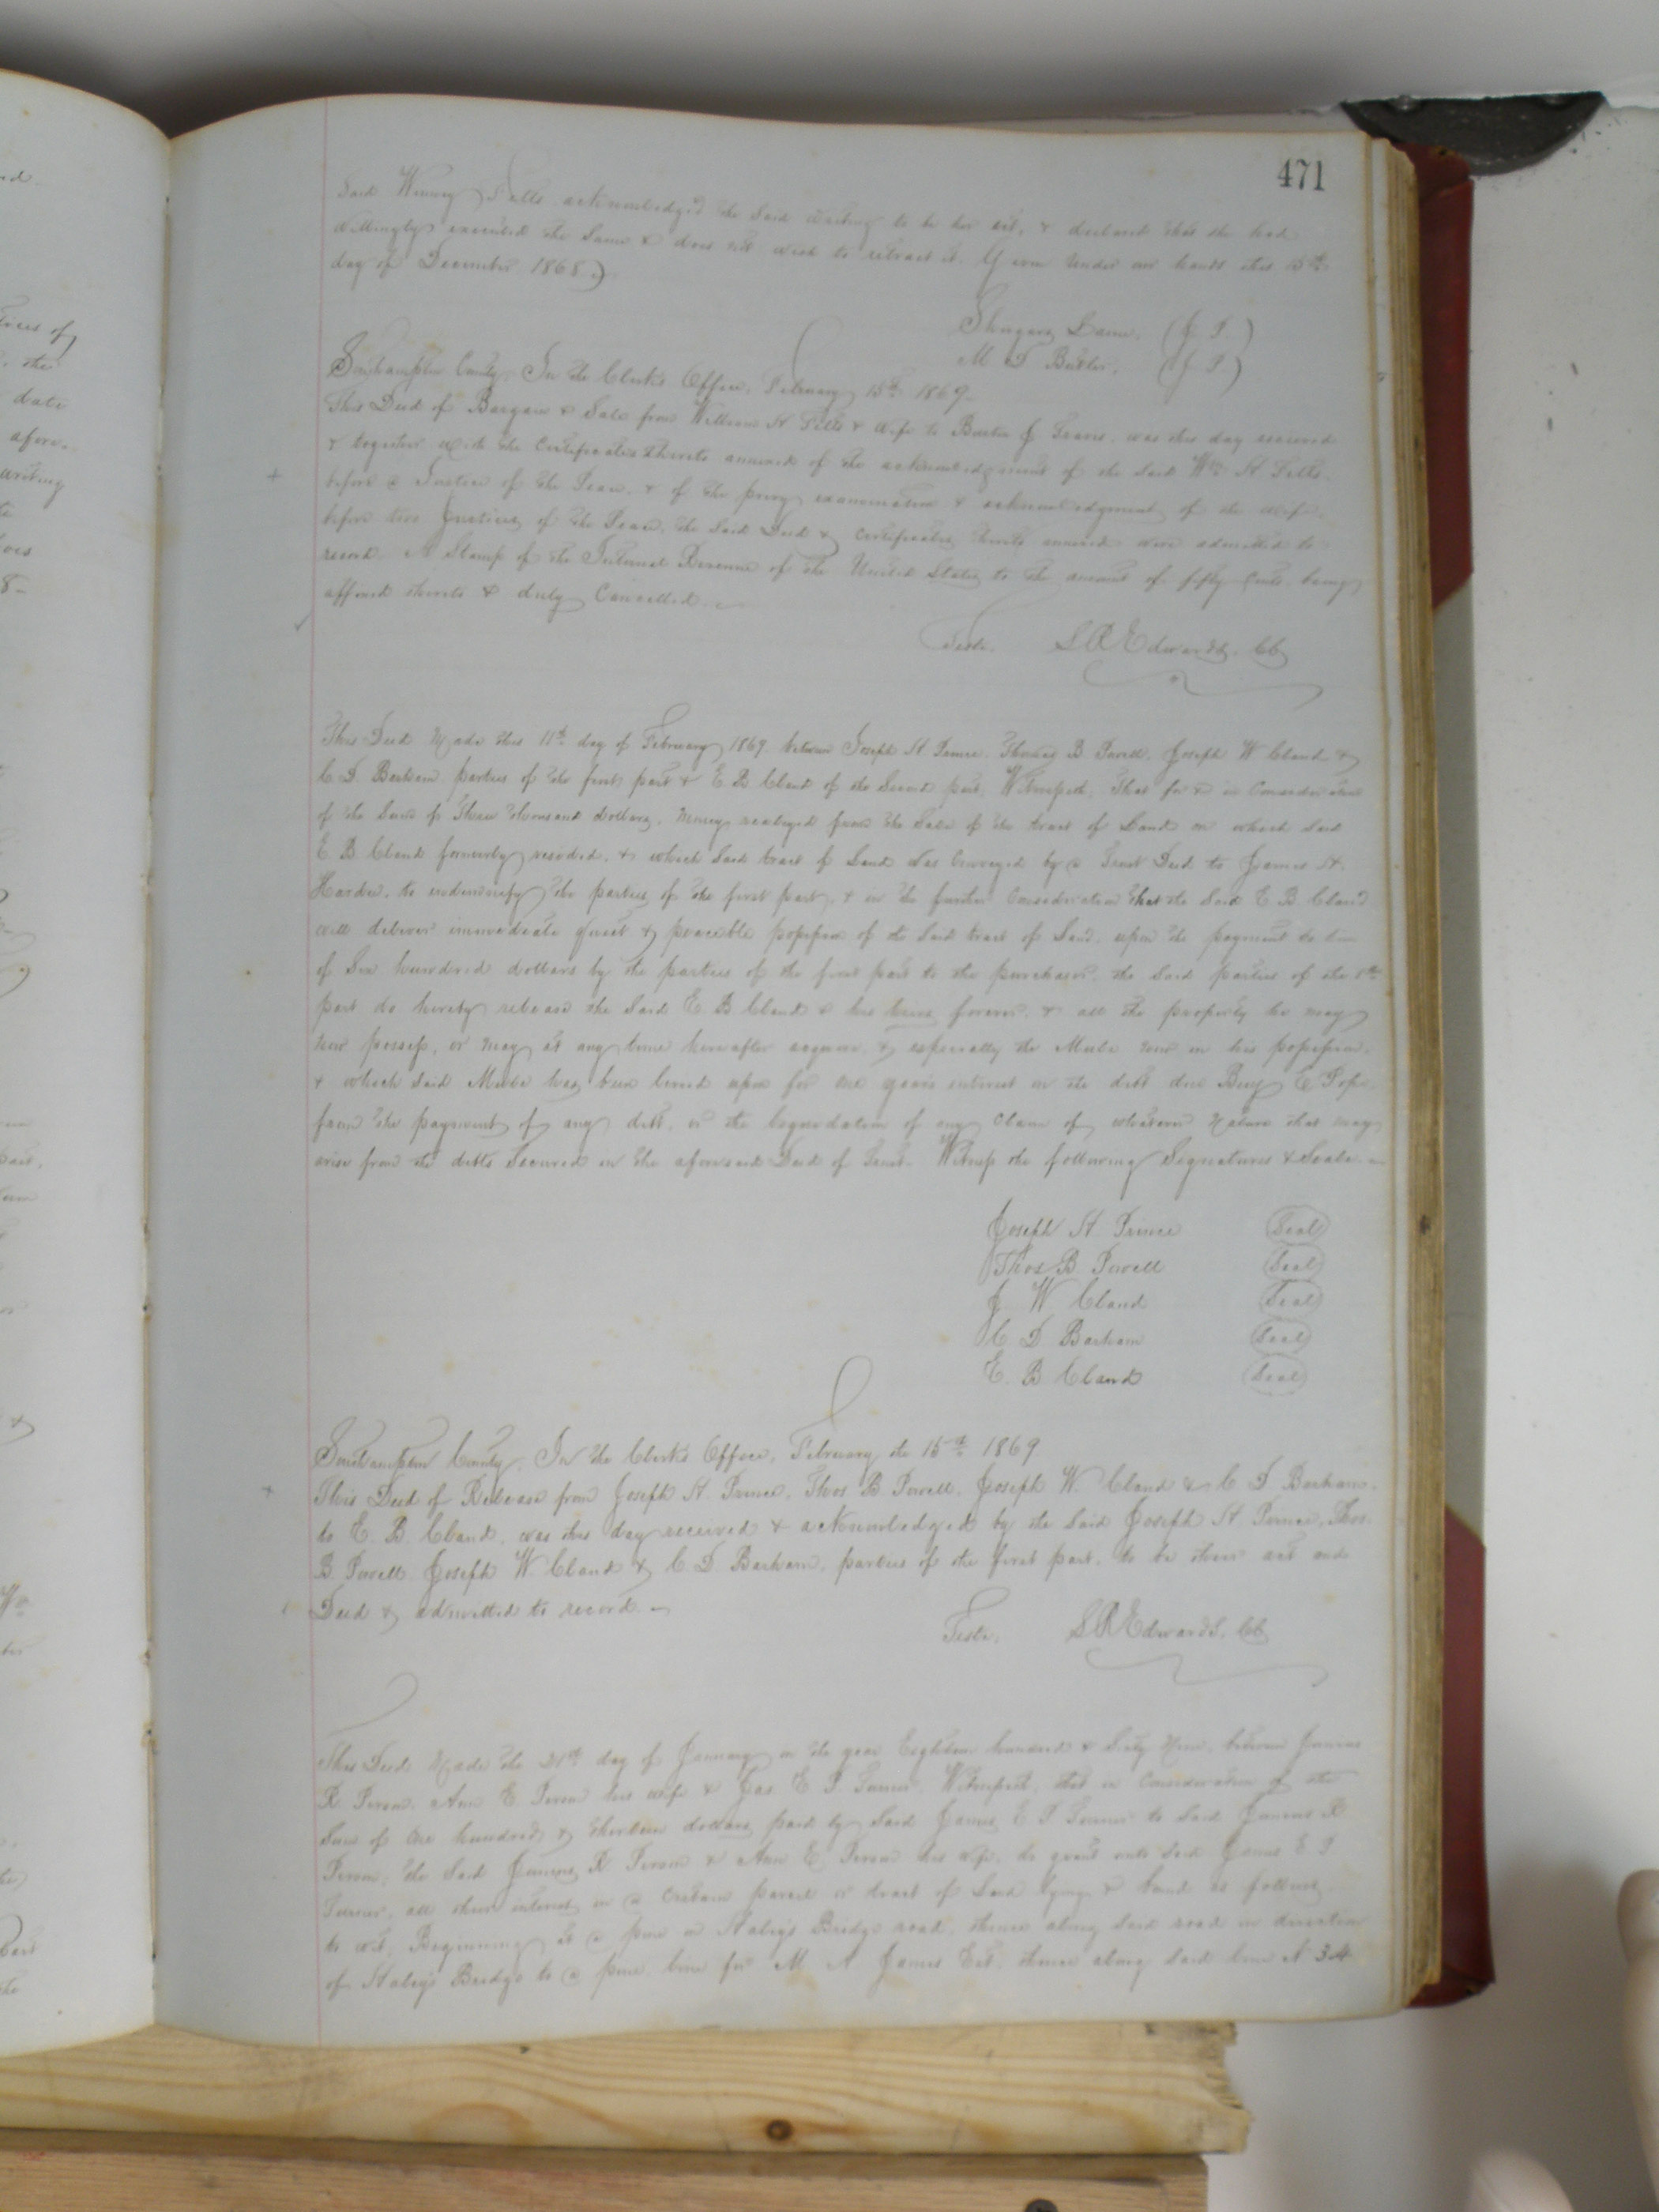 471
Said Winney Fells acknowledged the said writing to be her act, & declared that she had
willingly executed the same & does not wish to retract it. Given under our hands this 15th
day of December 1868.
(J P)
M D Butler. (J P)
Southampton County. In the Clerks Office, February 15th 1869.
This Deed of Bargain & Sale from William H & wife to J was this day received
& together with the Certificates thereto annexed of the acknowledgment of the said Wm H
before a Justice of the Peace, & of the privy examination & acknowledgment of the wife
before two Justices of the Peace, the said Deed & Certificates thereto annexed were admitted to
record. A Stamp of the Internal Revenue of the United States to the amount of fifty Cents being
affixed thereto & duly Cancelled.
Teste. L R Edwards. CC
This Deed Made this 11th day of February 1869 between Joseph H Prince, Thomas B Powell, Joseph W Claud &
C D Barham parties of the first part & E B Claud of the Second part, Witnesseth, That for & in Consideration
of the Sum of Three thousand dollars, money realized from the Sale of the tract of Land on which said
E. B Claud formerly resided, & which said tract of Land was Conveyed by a Trust Deed to James H.
to indemnify the parties of the first part, & in the further Consideration that the said E B Claud
will deliver immediate quiet & peaceable possession of the said tract of Land, upon the payment to him
of Six hundred dollars by the parties of the first part to the purchaser, the said parties of the 1st
part do hereby release the said E. B Claud & his heirs forever, & all the property he may
now possess, or may at any time hereafter acquire, & especially the Mule now in his possession
& which said Mule has been levied upon for one years interest on the debt due Benj E Pope
from the payment of any debt, or the liquidation of any claim of whatever Nature that may
arise from the debts Secured in the aforesaid Deed of Trust. Witness the following Signatures & Seals.
Joseph H. Prince Seal
Thos B. Powell Seal
J W Claud Seal
C D Barham Seal
E. B Claud Seal
Southampton County. In the Clerks Office, February the 15th 1869
This Deed of Release from Joseph H. Prince, Thos B. Powell, Joseph W. Claud & C D Barham,
to E. B. Claud, was this day received & acknowledged by the said Joseph H Prince, Thos.
B. Powell Joseph W. Claud & C. D. Barham, parties of the first part, to be their act and
Deed & admitted to record.
Teste. L R Edwards. CC
This Deed Made the 21st day of January in the year Eighteen hundred & Sixty Nine, between James
R. Person, Ann E Person his wife & Jas E T Turner, Witnesseth, that in Consideration of the
Sum of One hundred & thirteen dollars paid by said James E T Turner to said James R
Person, the said James R Person & Ann E. Person his wife, do grant unto said James E T
Turner, all their interest in a Certain parcel or tract of Land lying & bound as follows,
to wit, Beginning at a pine on Bridge road, thence along said road in direction
of Bridge to a pine, line for M A James Est. thence along said line N 34